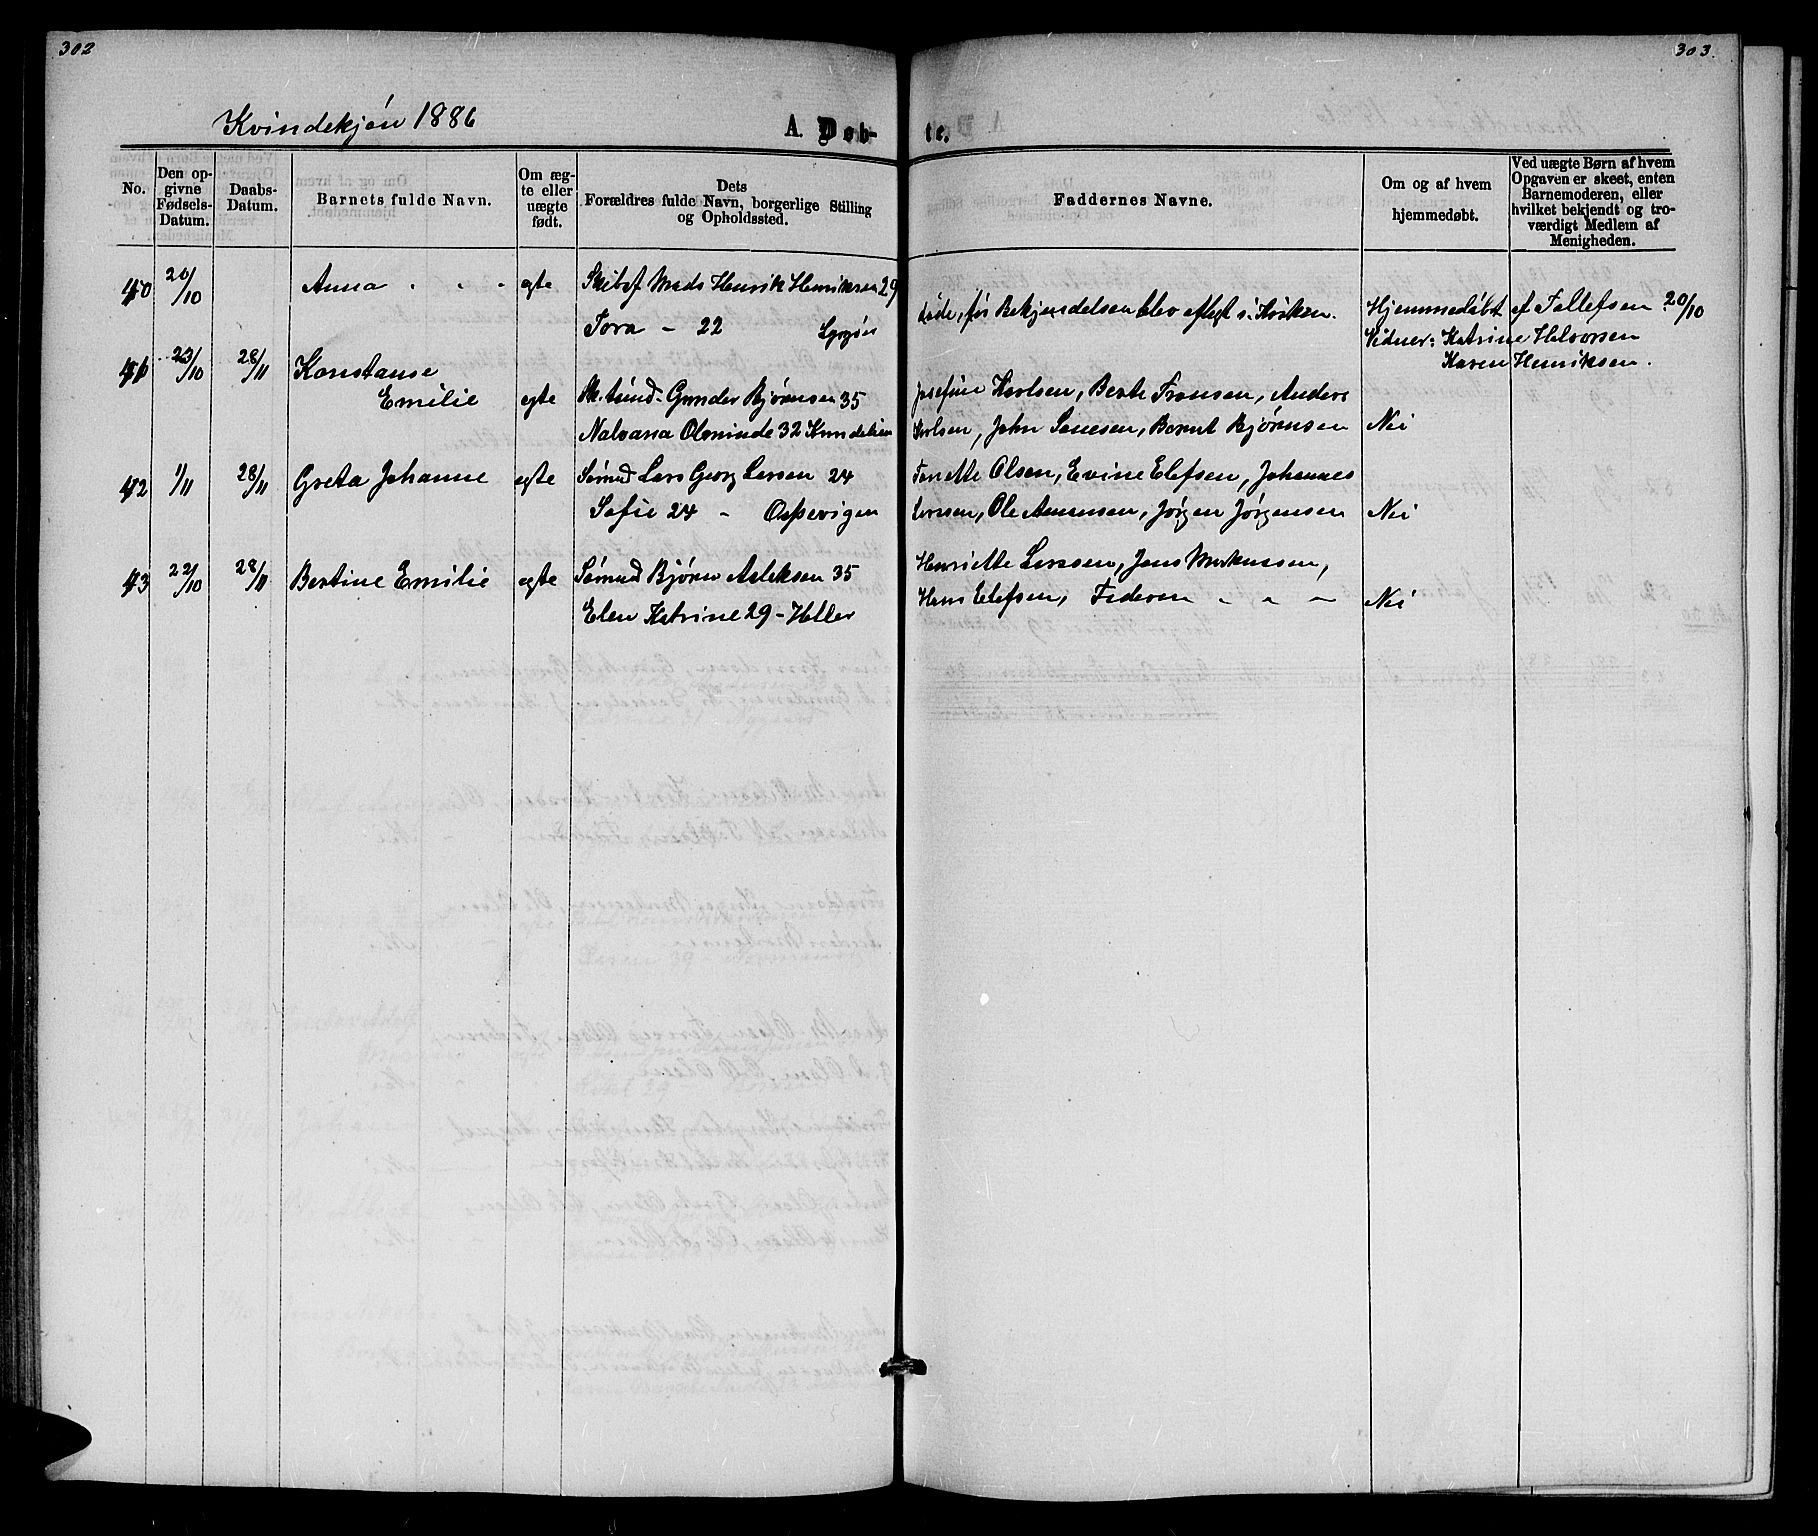 302
303.
Kvindekjøn 1886
A. Døb-
te.
No.
Den op-
givne
Fødsels-
Datum.
Daabs-
Datum.
Barnets fulde Navn.
Om æg-
te eller
uægte
født.
Dets
Forældres fulde Navn, borgerlige Stilling
og Opholdssted.
Faddernes Navne.
Om og af hvem
hjemmedøbt.
Ved uægte Børn af hvem
Opgaven er skeet, enten
Barnemoderen, eller
hvilket bekjendt og tro-
værdigt Medlem af
Menigheden.
40 20/10 Anna egte Skibsf Mads Henrik Henriksen 29
Tora – 22
Døde, før Bekjendelsen blev aflagt i Kirken. Hjemmedøbt af Tellefsen 20/10
Vidner: Katrine Halvorsen
Karen Henriksen.
41 23/10 28/11 Konstanse
Emilie egte Gunder Bjørnsen 35
Josefine Karlsen, Berte Fransen, Anders
32
Karlsen, John Bernt Bjørnsen Nei
42 1/11 28/11 Greta Johanne egte Sømnd Lars Georg Larsen 24
Sofie 24 – Ospevigen
Torette Olsen, Evine Elefsen, Johannes
Larssen, Ole Amunsen, Jørgen Jørgensen Nei
43 22/10 28/11 Bertine Emilie egte Sømnd Bjørn Asleksen 35
Elen Katrine 29 – Heller
Henriette Larssen, Jens Markussen,
Hans Elefsen, Faderen – – – Nei